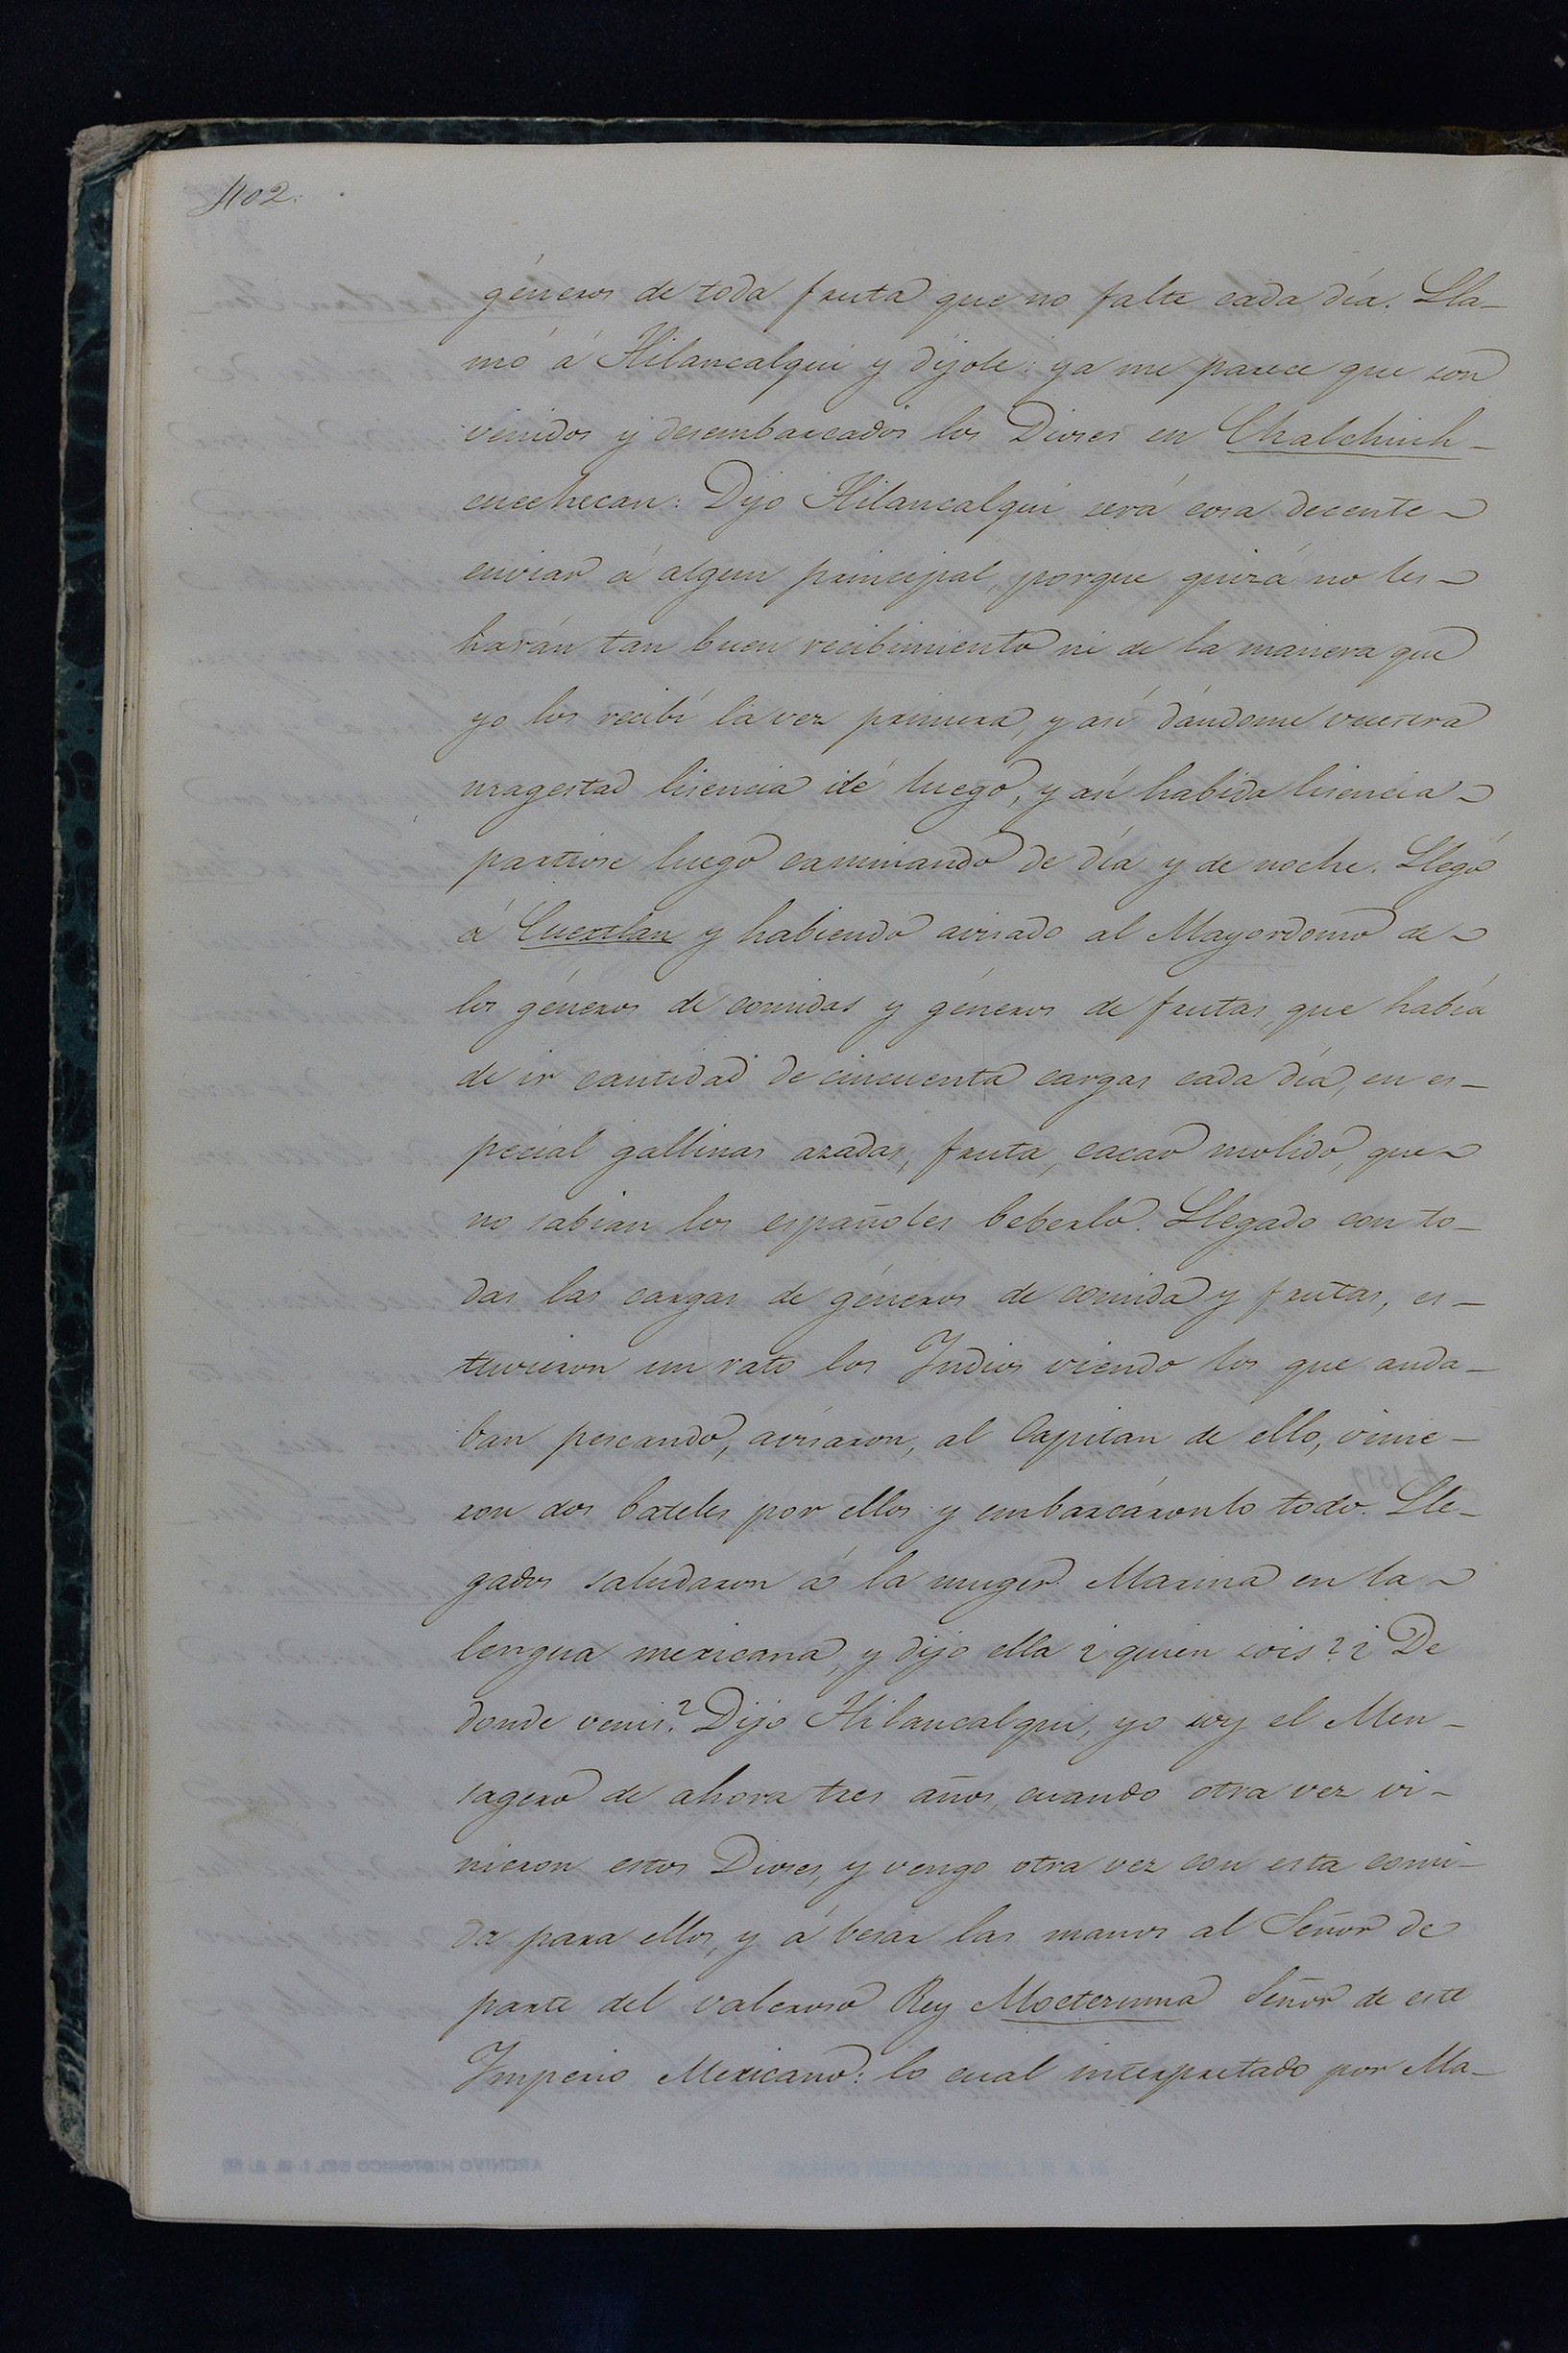 402.
géneros de toda fruta que no falte cada día. Lla-
mó á Hilancalqui y díjole: ya me parece que son
venidos y desembarcados los Dioses en Chalchiuh-
cuechecan: Dijo Hilancalqui será cosa decente
enviar á algun principal, porque quizá no les
harán tan buen recibimiento ni de la manera que
yo los recibí la vez primera, y así dándome vuestra
magestad lisencia iré luego, y así habida lisencia
partiose luego caminando de día y de noche. Llegó
á Cuextlan y habiendo avisado al Mayordomo de
los géneros de comidas y géneros de frutas, que había
de ir cantidad de cincuenta cargas cada día, en es-
pecial gallinas azadas, fruta, cacao molido, que
no sabian los españoles beberlo. Llegado con to-
das las cargas de géneros de comida y frutas, es-
tuvieron un rato los Indios viendo los que anda-
ban pescando, avisaron, al Capitan de ello, vinie-
ron dos bateles por ellos y embarcáronlo todo. Lle-
gados saludaron á la muger Marina en la
lengua mexicana, y dijo ella ¿quien sois? ¿De
donde venis? Dijo Hilancalqui, yo soy el Men-
sagero de ahora tres años, cuando otra vez vi-
nieron estos Dioses, y vengo otra vez con esta comi-
da para ellos, y á besar las manos al Señor de
parte del valeroso Rey Moctezuma Señor de este
Imperio Mexicano: lo cual interpretado por Ma-